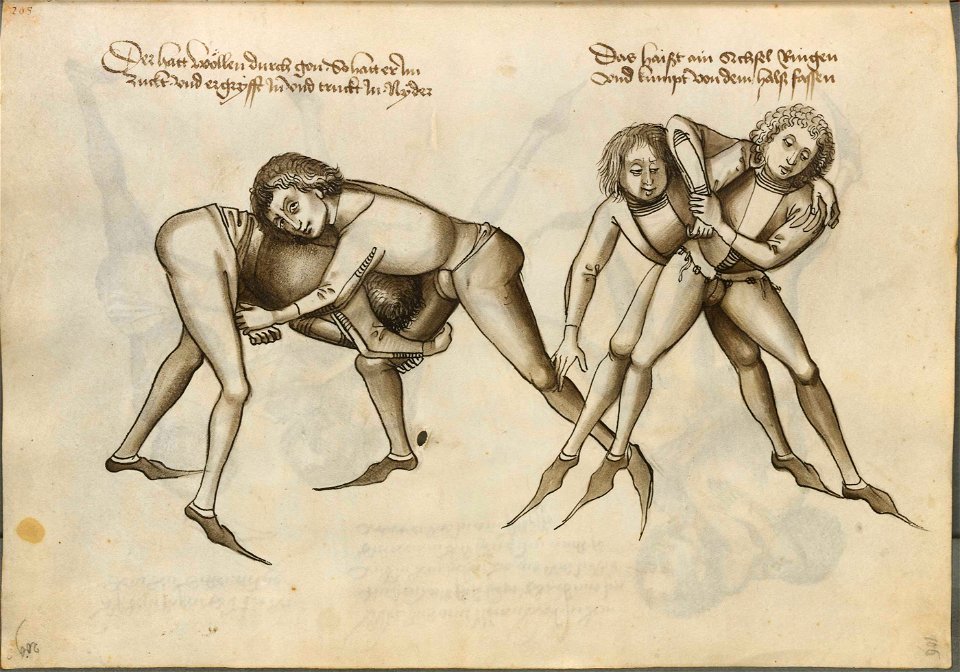 205
Der hatt Wöllen durch gon So hatt er Im
zuckt vnd ergryfft In vnd truckt In Nyder
Das haist ain Achsel Ringen
vnd kumpt von dem halß fassen